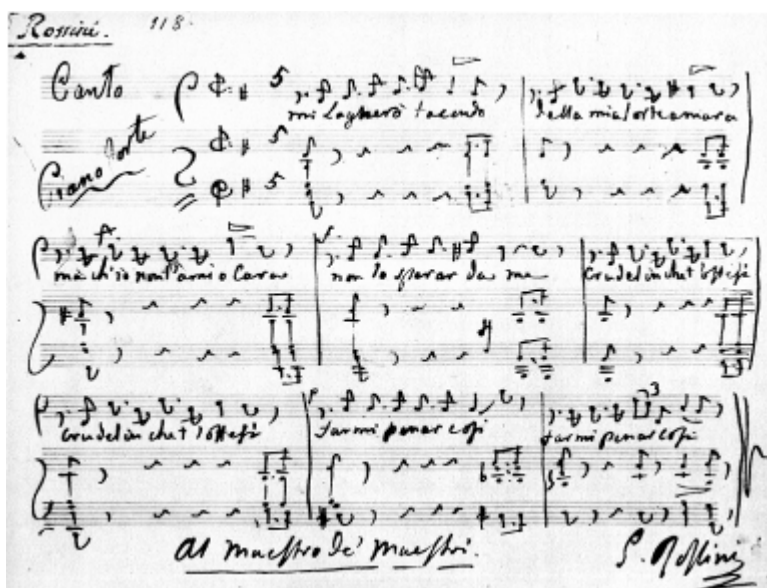 Rossini. 118.
Canto
mi lagnerò tacendo della mia sorte amara
Piano forte
ma ch'io non t'ami o cara non lo sperar da me Crudel in che t'offesi
Crudel in che t'offesi farmi penar così farmi penar così
Al Maestro de' Maestri. G. Rossini